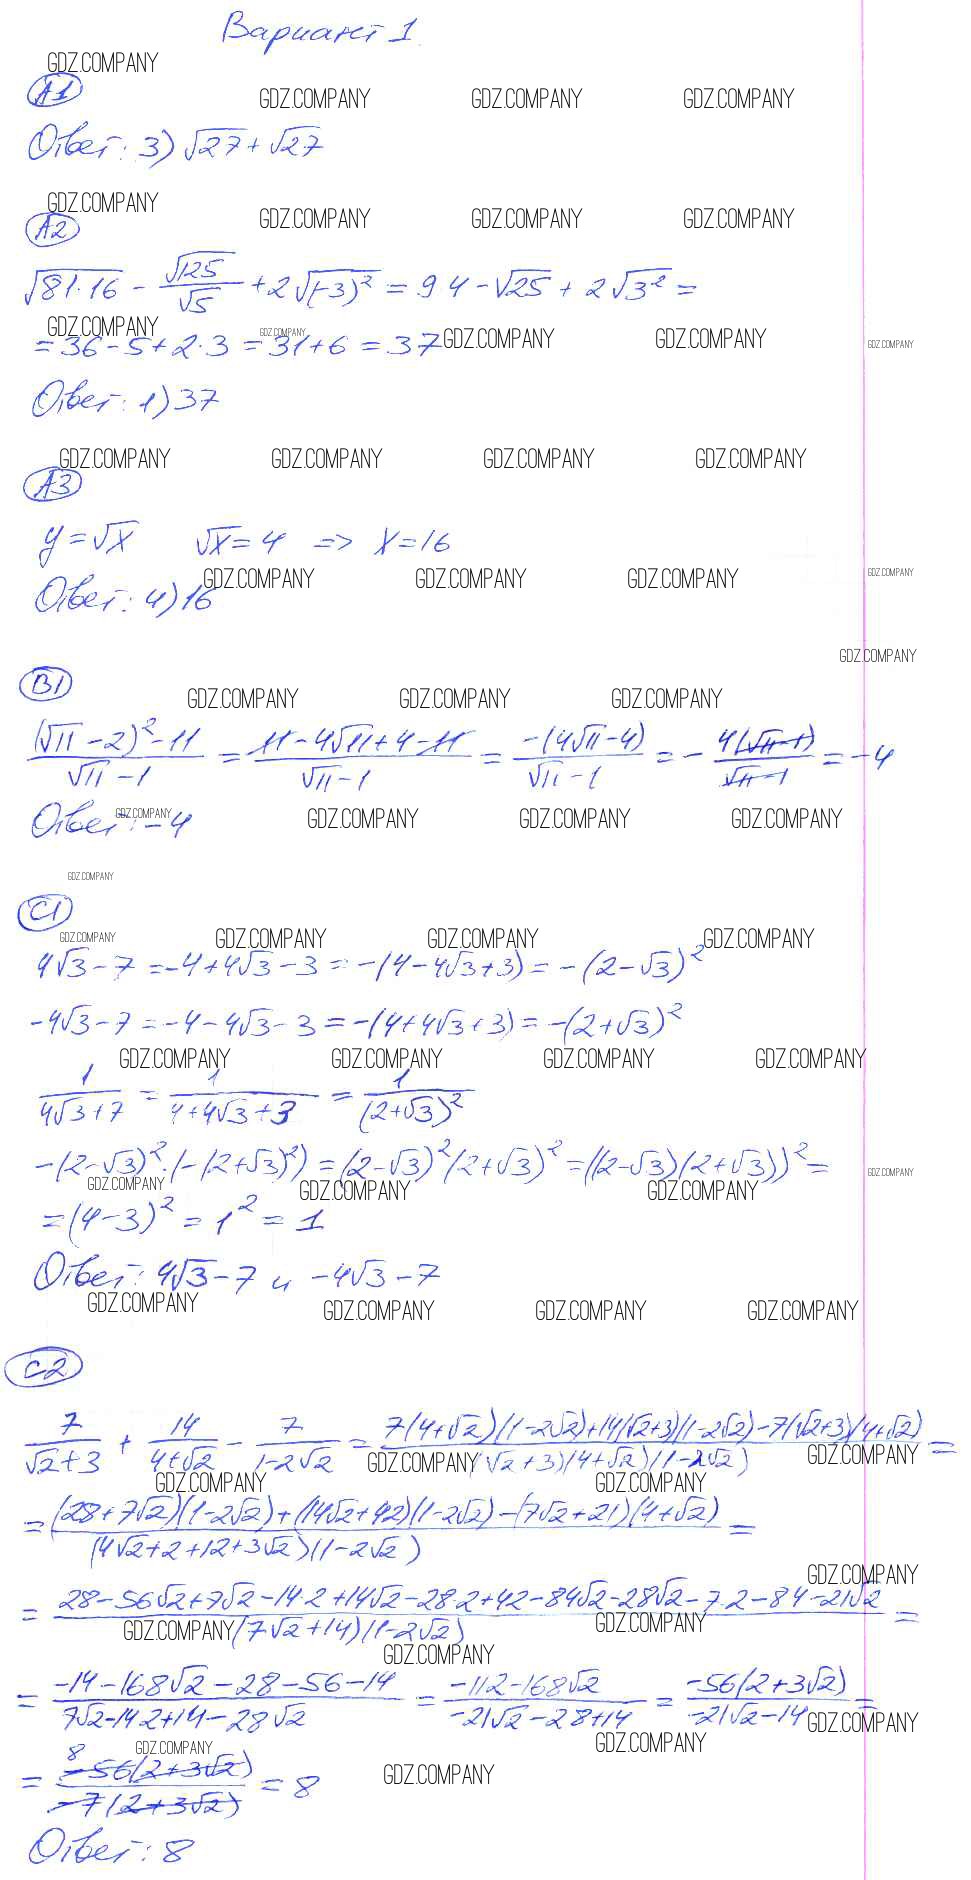 Вариант 1.
GDZ.COMPANY
А1
GDZ.COMPANY GDZ.COMPANY GDZ.COMPANY
Ответ: 3) √27 + √27
GDZ.COMPANY
А2
GDZ.COMPANY GDZ.COMPANY GDZ.COMPANY
√81·16 - √125/√5 + 2√(-3)² = 9·4 - √25 + 2√3² =
GDZ.COMPANY GDZ.COMPANY GDZ.COMPANY GDZ.COMPANY GDZ.COMPANY
= 36 - 5 + 2·3 = 31 + 6 = 37
Ответ: 1) 37
GDZ.COMPANY GDZ.COMPANY GDZ.COMPANY GDZ.COMPANY
А3
y = √x √x = 4 => x = 16
GDZ.COMPANY GDZ.COMPANY GDZ.COMPANY GDZ.COMPANY
Ответ: 4) 16
GDZ.COMPANY
В1
GDZ.COMPANY GDZ.COMPANY GDZ.COMPANY
(√11 - 2)² - 11 / √11 - 1 = 11 - 4√11 + 4 - 11 / √11 - 1 = -(4√11 - 4) / √11 - 1 = - 4(√11 - 1) / √11 - 1 = -4
GDZ.COMPANY GDZ.COMPANY GDZ.COMPANY GDZ.COMPANY
Ответ: -4
GDZ.COMPANY
С1
GDZ.COMPANY GDZ.COMPANY GDZ.COMPANY GDZ.COMPANY
4√3 - 7 = -4 + 4√3 - 3 = -(4 - 4√3 + 3) = -(2 - √3)²
-4√3 - 7 = -4 - 4√3 - 3 = -(4 + 4√3 + 3) = -(2 + √3)²
GDZ.COMPANY GDZ.COMPANY GDZ.COMPANY GDZ.COMPANY
1 / 4√3 + 7 = 1 / 4 + 4√3 + 3 = 1 / (2 + √3)²
-(2 - √3)²·(-(2 + √3)²) = (2 - √3)²(2 + √3)² = ((2 - √3)(2 + √3))² =
GDZ.COMPANY GDZ.COMPANY GDZ.COMPANY GDZ.COMPANY
= (4 - 3)² = 1² = 1
Ответ: 4√3 - 7 и -4√3 - 7
GDZ.COMPANY GDZ.COMPANY GDZ.COMPANY GDZ.COMPANY
С2
7 / √2 + 3 + 14 / 4 + √2 - 7 / 1 - 2√2 = 7(4 + √2)(1 - 2√2) + 14(√2 + 3)(1 - 2√2) - 7(√2 + 3)(4 + √2) / (√2 + 3)(4 + √2)(1 - 2√2) =
GDZ.COMPANY GDZ.COMPANY
GDZ.COMPANY GDZ.COMPANY
= (28 + 7√2)(1 - 2√2) + (14√2 + 42)(1 - 2√2) - (7√2 + 21)(4 + √2) / (4√2 + 2 + 12 + 3√2)(1 - 2√2) =
GDZ.COMPANY
= 28 - 56√2 + 7√2 - 14·2 + 14√2 - 28·2 + 42 - 84√2 - 28√2 - 7·2 - 84 - 21√2 / (7√2 + 14)(1 - 2√2) =
GDZ.COMPANY GDZ.COMPANY
GDZ.COMPANY
= -14 - 168√2 - 28 - 56 - 14 / 7√2 - 14·2 + 14 - 28√2 = -112 - 168√2 / -21√2 - 28 + 14 = -56(2 + 3√2) / -21√2 - 14 =
GDZ.COMPANY
GDZ.COMPANY GDZ.COMPANY
= 8 -56(2 + 3√2) / -7(2 + 3√2) = 8
GDZ.COMPANY
Ответ: 8